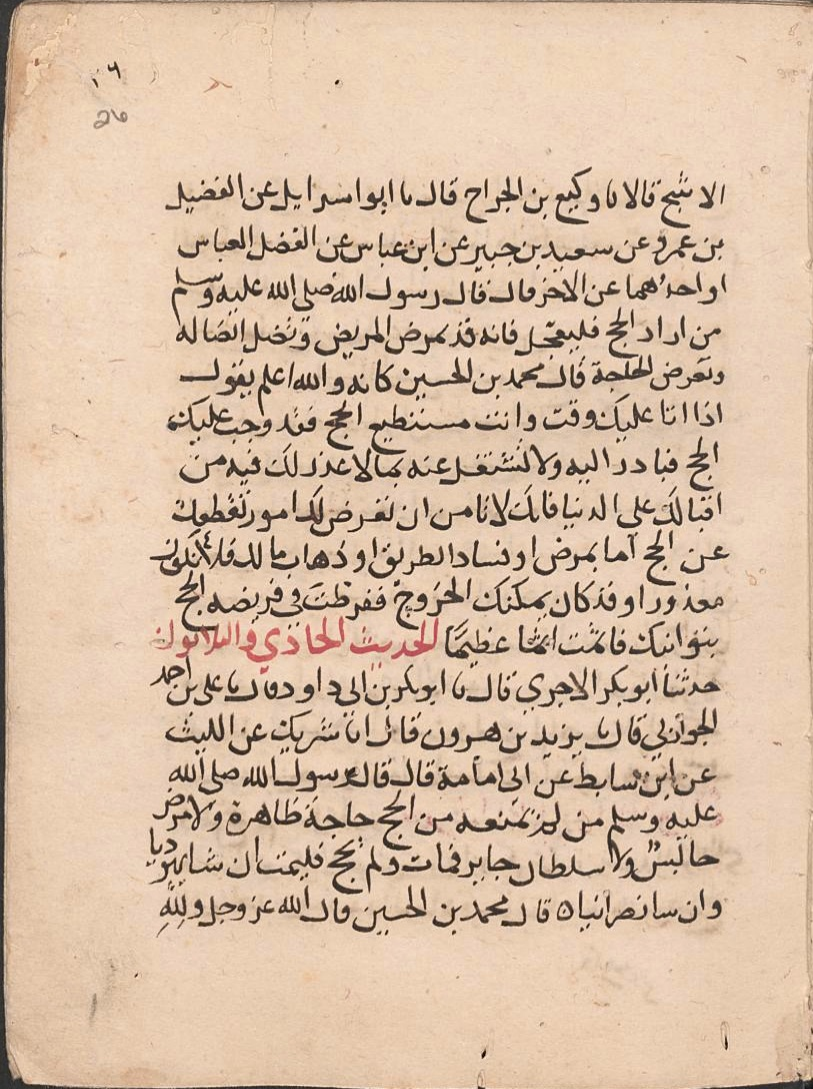 ٢٦
26
الاشج قالا نا وكيع بن الجراح قال نا ابو اسرايل عن الفضيل
بن عمرو عن سعيد بن جبير عن ابن عباس عن الفضل العباس
او احدهما عن الاخر قال قال رسول الله صلى الله عليه وسلم
من اراد الحج فليعجل فانه قد يمرض المريض وتضل الضاله
وتعرض الحاجة قال محمد بن الحسين كانه والله اعلم يقول
اذا اتا عليك وقت وانت مستطيع الحج فقد وجب عليك
الحج فبادر اليه ولا تشتغل عنه بما لا عذر لك فيه من
اقبالك على الدنيا فانك لا تامن ان تعرض لك امور تقطعك
عن الحج اما بمرض او فساد الطريق او ذهاب مالك فلا تكون
معذورا وقد كان يمكنك الخروج ففرطت في فريضه الحج
بتوانيك فاثمت اثما عظيما الحديث الحادي والثلاثون
حدثنا ابو بكر الاجري قال نا ابو بكر بن ابي داود قال نا علي بن احمد
الجواربي قال نا يزيد بن هرون قال انا شريك عن الليث
عن ابن سابط عن ابي امامة قال قال رسول الله صلى الله
عليه وسلم من لم تمنعه من الحج حاجة ظاهرة ولا مرض
حابس ولا سلطان جاير فمات ولم يحج فليمت ان شا يهوديا
وان شا نصرانيا ه قال محمد بن الحسين قال الله عز وجل ولله